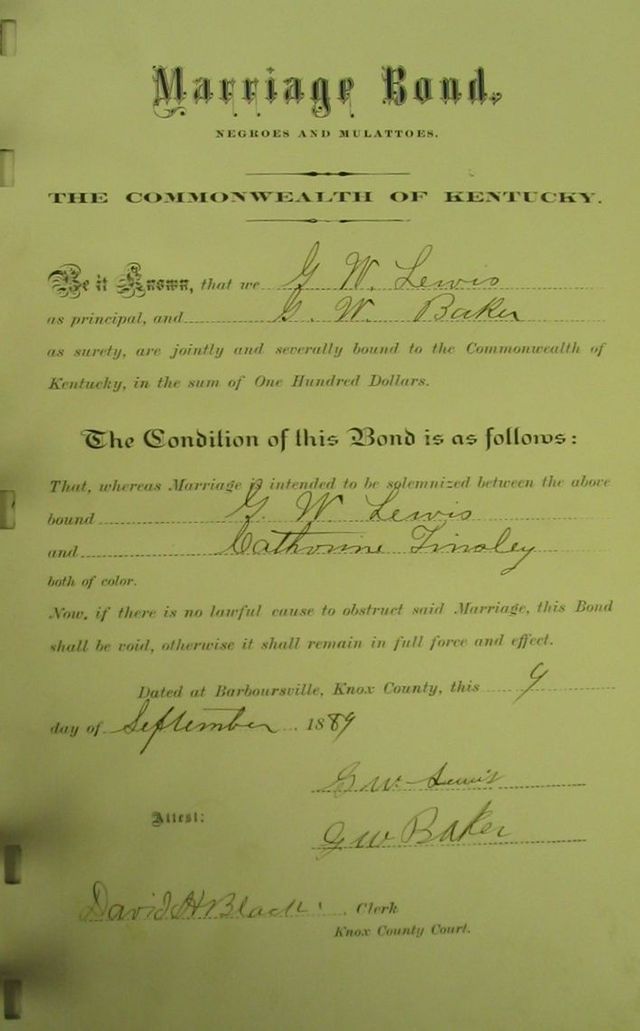 Marriage Bond.
NEGROES AND MULATTOES.
THE COMMONWEALTH OF KENTUCKY.
Be it Known, that we G W. Lewis
as principal, and G. W. Baker
as surety, are jointly and severally bound to the Commonwealth of
Kentucky, in the sum of One Hundred Dollars.
The Condition of this Bond is as follows:
That, whereas Marriage is intended to be solemnized between the above
bound G. W. Lewis
and Cathorine Tinsley
both of color.
Now, if there is no lawful cause to obstruct said Marriage, this Bond
shall be void, otherwise it shall remain in full force and effect.
Dated at Barboursville, Knox County, this 9
day of September 1889
G W. Lewis
Attest:
G W Baker
David H Black. Clerk
Knox County Court.